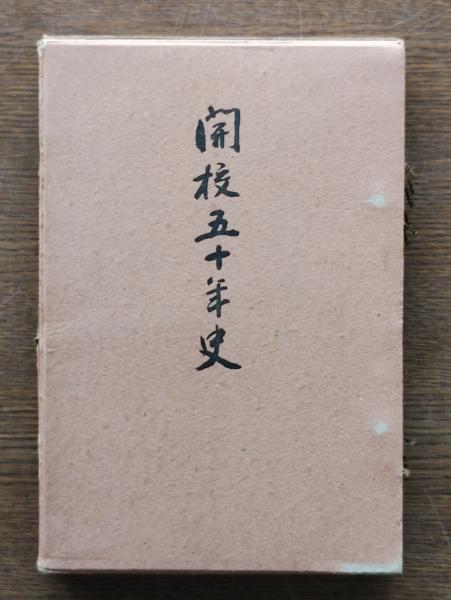 開校五十年史